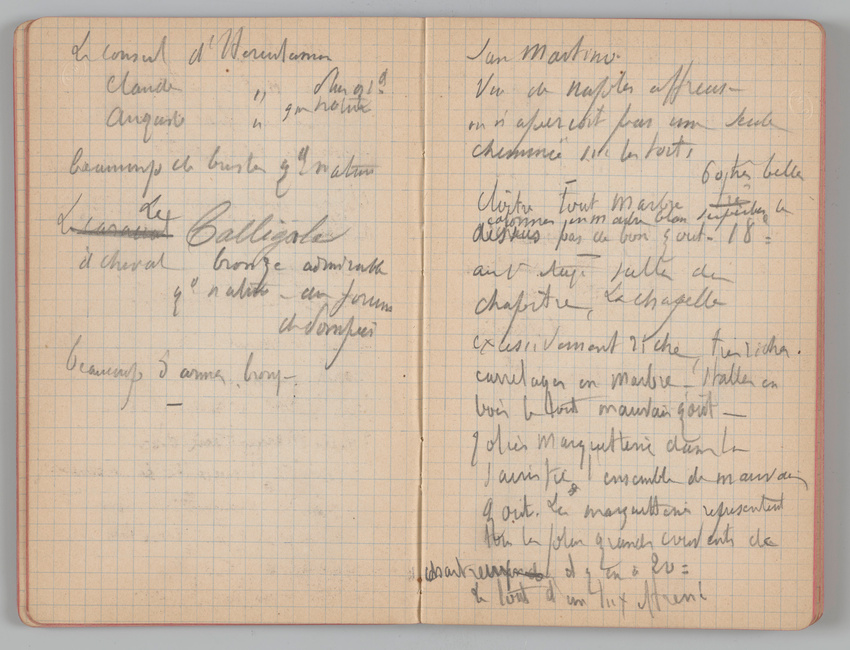 Le consul d'Herculanum
Claude " plus gd
Auguste " que nature
beaucoup de bustes gd nature
Le Calligola
à cheval bronze admirable
gd nature - du forum
de Pompéi
beaucoup d'armes bronz.
San Martino.
Vue de Naples affreuse
on n'aperçoit pas une seule
cheminée sur les toits
60 très belles
cloître tout marbre
colonnes en marbre blanc superbes le
dessus pas de bon gout - 18e
salle du
chapitre, La chapelle
excessivement riche, très riches.
carrelages en marbre - stalles en
bois le tout mauvais goût -
jolies marquetterie dans la
sacristie, ensemble de mauvais
goût. Les marquetteries représentent
les plus grands couvents de
chartreux il y en a 20 =
Le tout d'un lux effréné